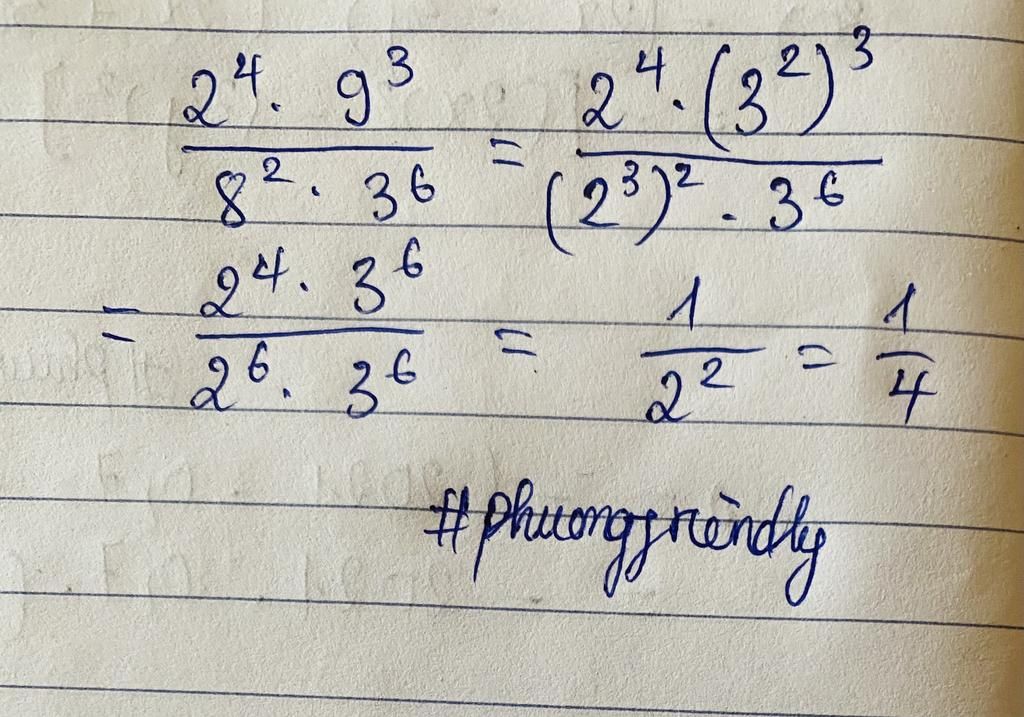 2⁴ · 9³ / 8² · 3⁶ = 2⁴ · (3²)³ / (2³)² · 3⁶
= 2⁴ · 3⁶ / 2⁶ · 3⁶ = 1 / 2² = 1 / 4
#phuongfriendly